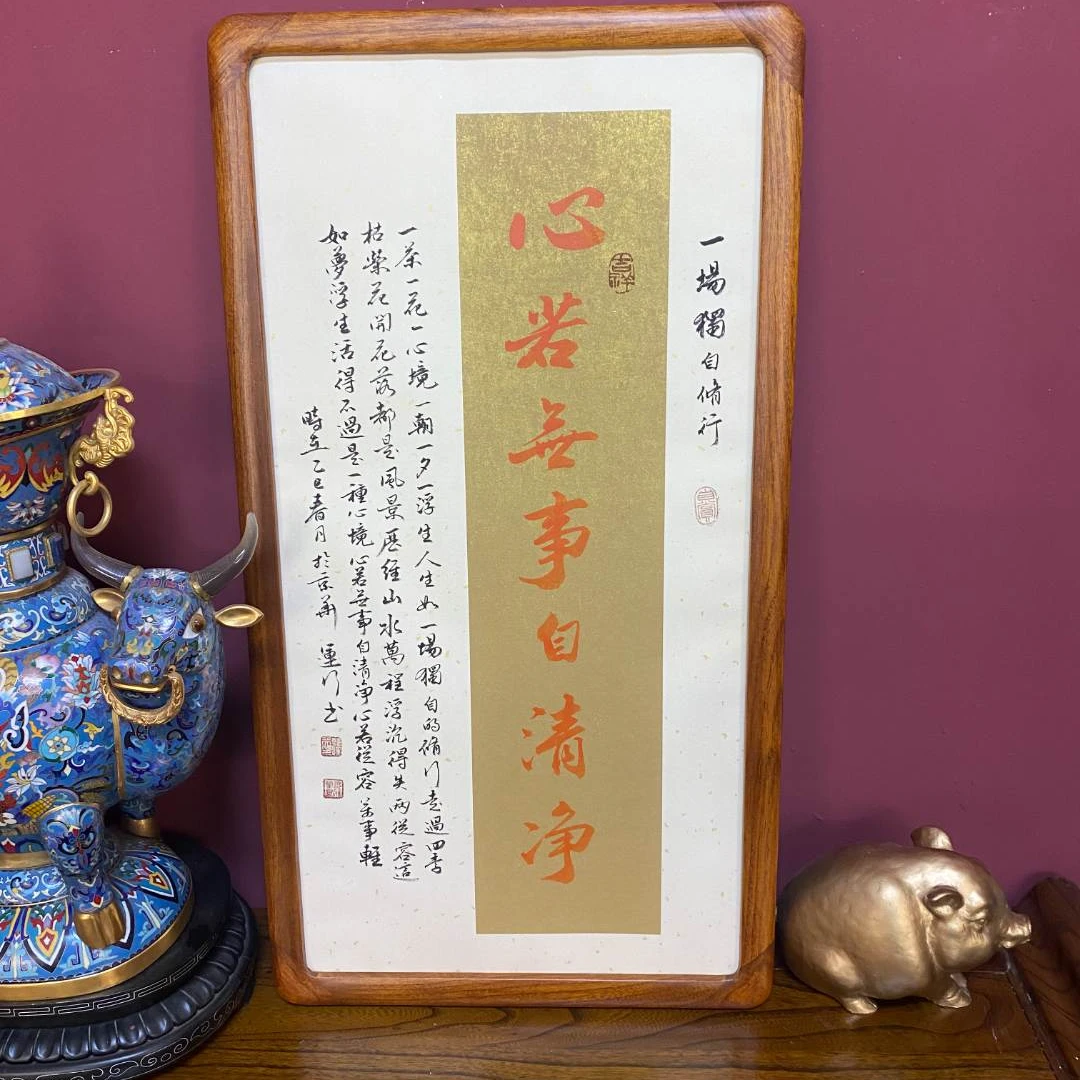 一場獨自脩行
吉祥
心若無事自清净
一茶一花一心境一朝一夕一浮生人生如一場獨自的脩行走過四季
枯榮花開花落都是風景歷經山水萬程浮沉得失兩從容這
如夢浮生活得不過是一種心境心若無事自清净心若從容萬事輕
時在乙巳春月於京華 運行书